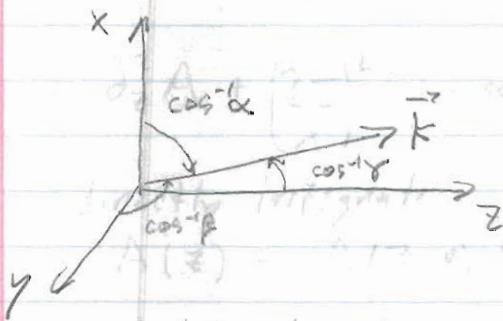 x
cos⁻¹α
k⃗
cos⁻¹γ
z
cos⁻¹β
y